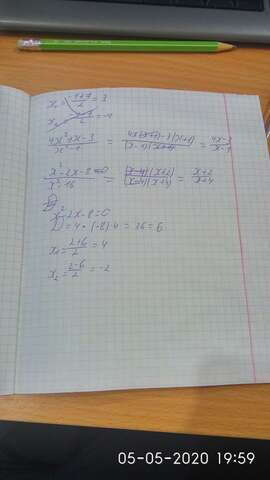 x₁ = (-1+7)/2 = 3
(4x²+x-3)/(x²-1) = (4x(x+1)-3(x+1))/((x-1)(x+1)) = (4x-3)/(x-1)
(x²-2x-8)/(x²-16) = ((x-4)(x+2))/((x-4)(x+4)) = (x+2)/(x+4)
x²-2x-8=0
= 4 - (-8)·4 = 36 = 6
x₁ = (2+6)/2 = 4
x₂ = (2-6)/2 = -2
05-05-2020 19:59